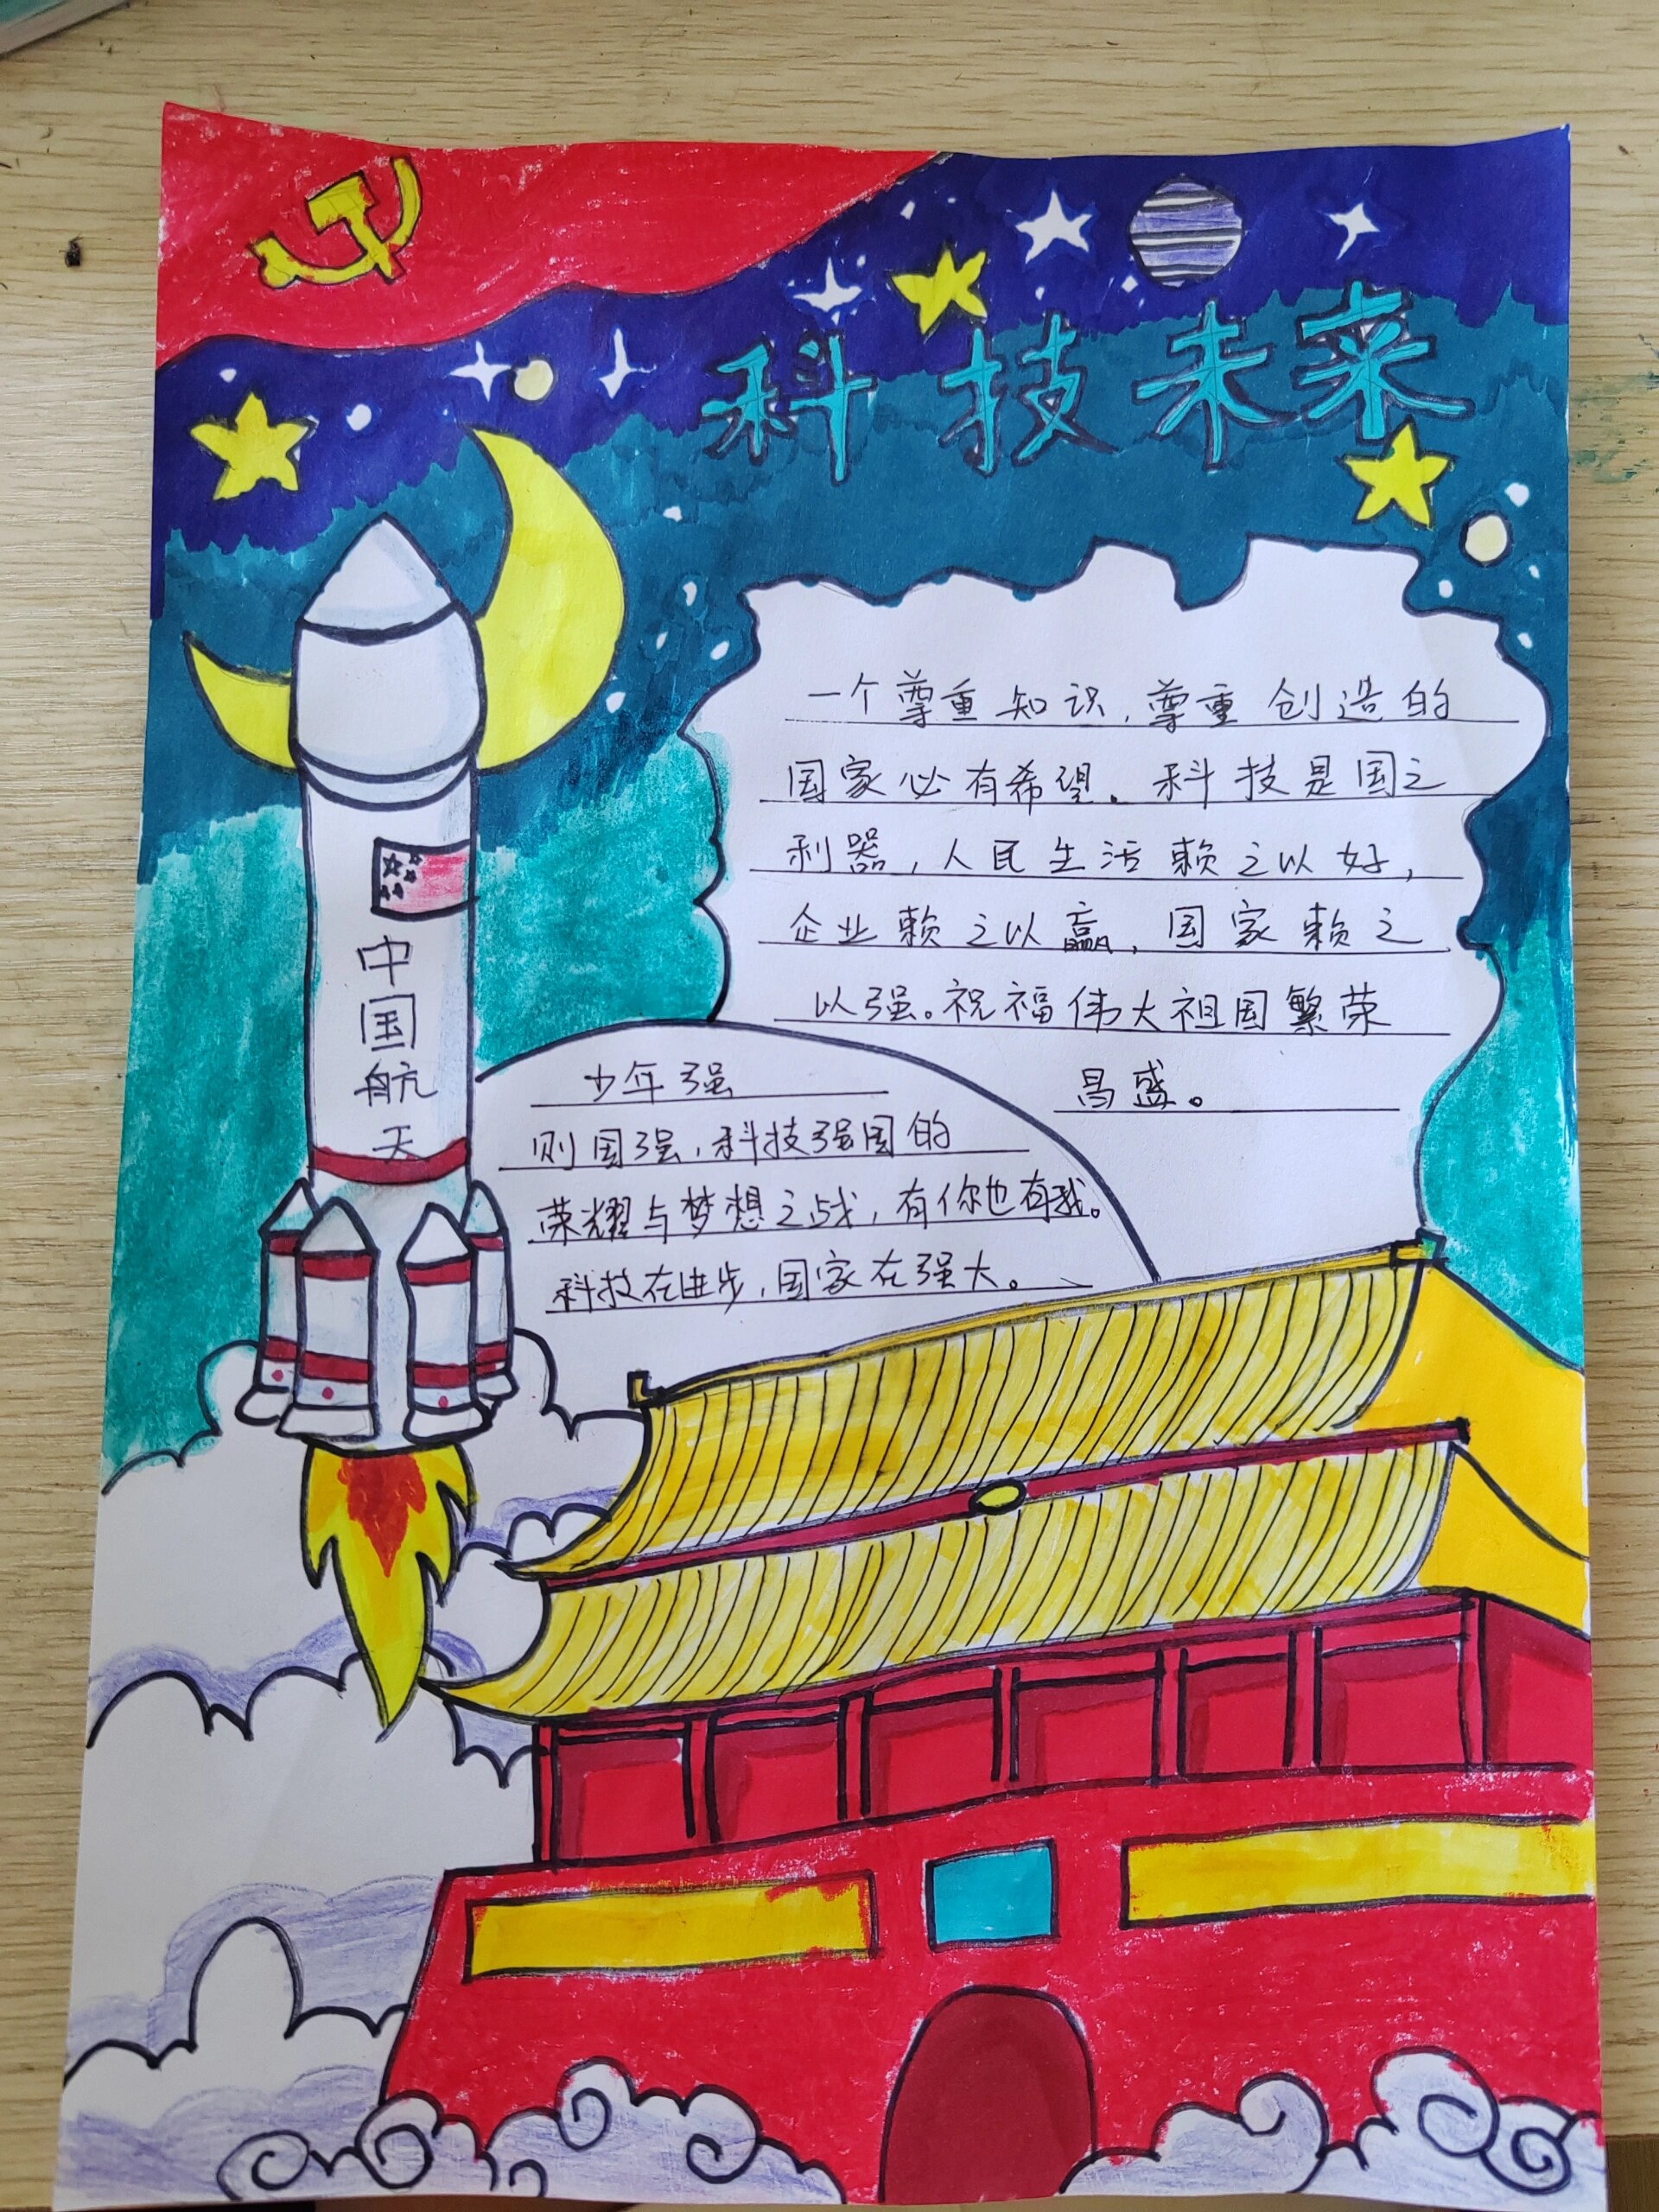 科技未来
一个尊重知识，尊重创造的
国家必有希望。科技是国之
利器，人民生活赖之以好，
企业赖之以赢，国家赖之
以强。祝福伟大祖国繁荣
昌盛。
少年强
则国强，科技强国的
荣耀与梦想之战，有你也有我。
科技在进步，国家在强大。
中
国
航
天